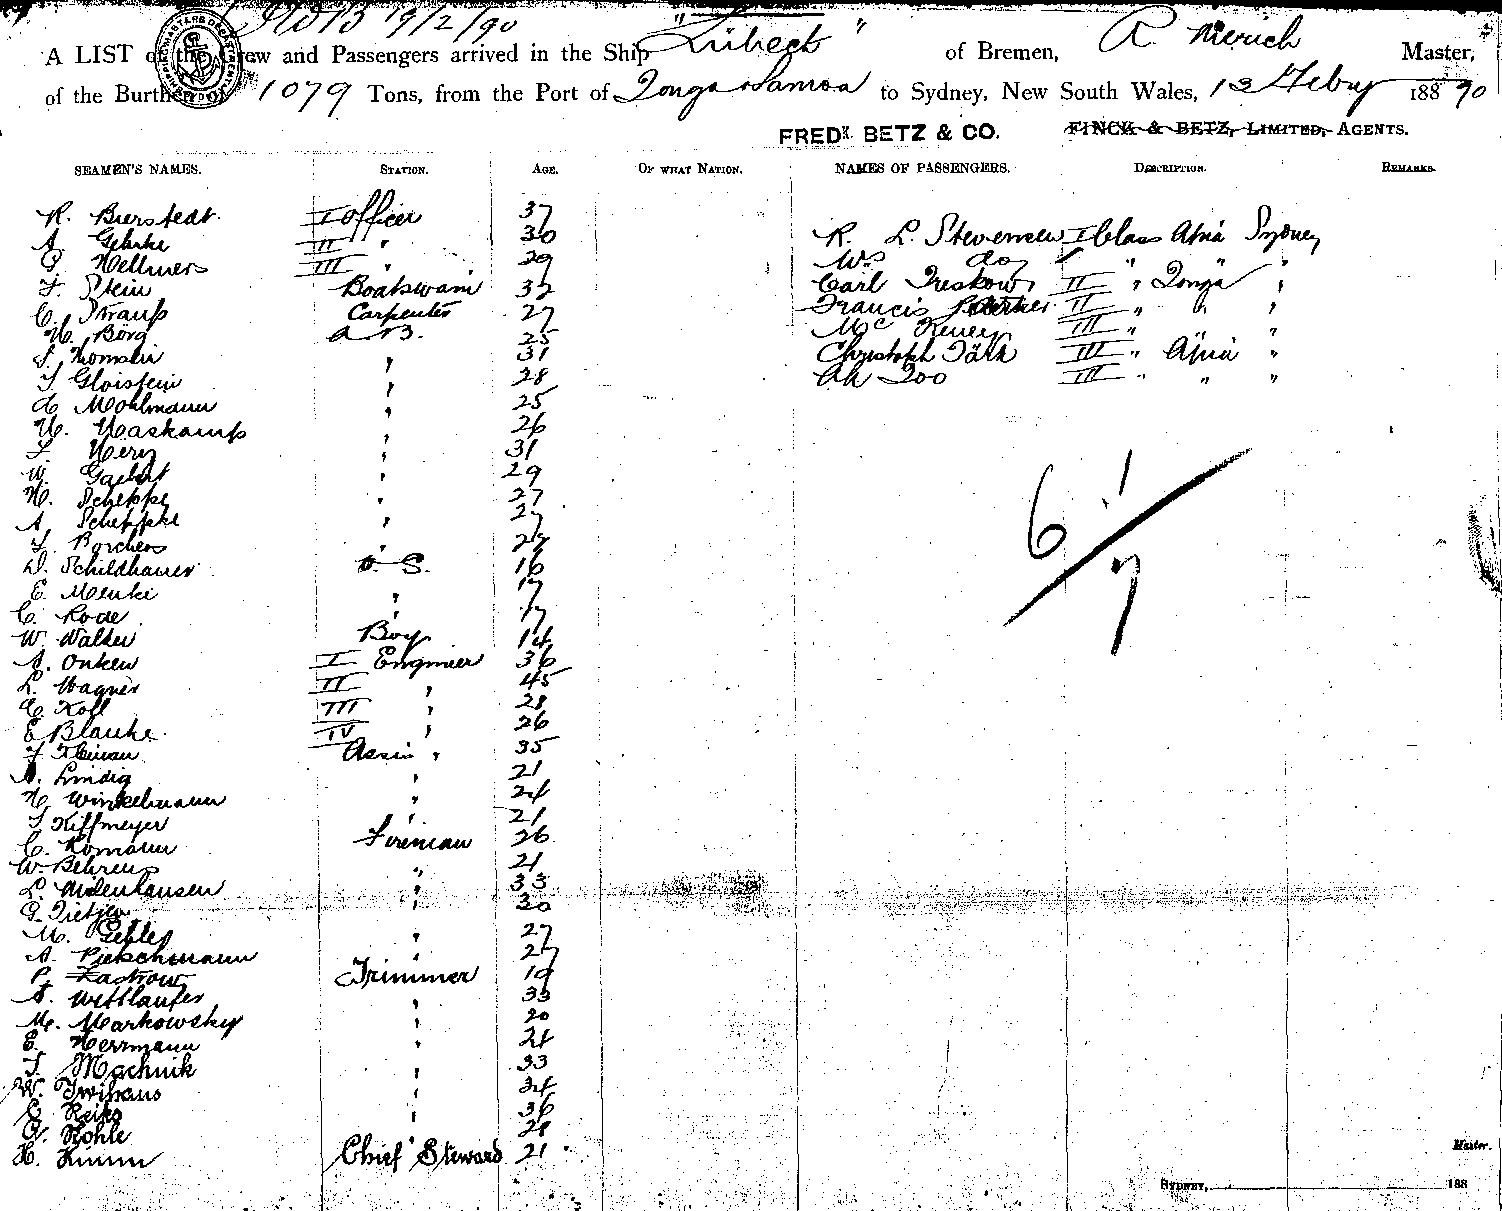 19/2/90
A LIST of the Crew and Passengers arrived in the Ship "Lübeck" of Bremen, R. Master,
of the Burthen of 1079 Tons, from the Port of Tonga Samoa to Sydney, New South Wales, 13 Feby 1890
FREDK. BETZ & CO. FINCK & BETZ, LIMITED, AGENTS.
SEAMEN'S NAMES. STATION. AGE. OF WHAT NATION. NAMES OF PASSENGERS. DESCRIPTION. REMARKS.
R. Bierstedt. I officer 37
A. Gehrke II " 30
Hellmers III " 29
F. Stein Boatswain 32
C. Straup Carpenter 27
H. Borg A B. 25
Thomsen " 31
Gloistein " 28
Mohlmann " 25
H. Haskamp " 26
F. " 31
W. " 29
H. Scheppke " 27
A. Scheppke " 27
F. Borchers " 27
D. Schildhauer O. S. 16
E. Menke " 17
C. Rode " 17
W. Walter Boy 14
A. Onken I Engineer 36
L. Wagner II " 45
C. Koll III " 28
E Blanke IV " 26
F Assis " 35
A. Lindig " 21
H. Winkelmann " 24
Kiffmeyer " 21
C. Homann Fireman 26
W. Behrens " 21
L. " 33
G. Tietjen " 30
M. " 27
A. Pietschmann " 27
P. Zastrow Trimmer 19
A. Wittlaufer " 33
M. Markowsky " 20
E. Herrmann " 24
Machnik " 33
W. " 34
E. " 36
Kohle " 28
H. Kumm Chief Steward 21
R. L. Stevenson I Class Apia Sydney
Mrs do " " "
Carl Treskow II " Tonga "
Francis II " " "
Mc III " " "
Christoph III " Apia "
Ah Too III " " "
6 1
7
Master.
SYDNEY, 188